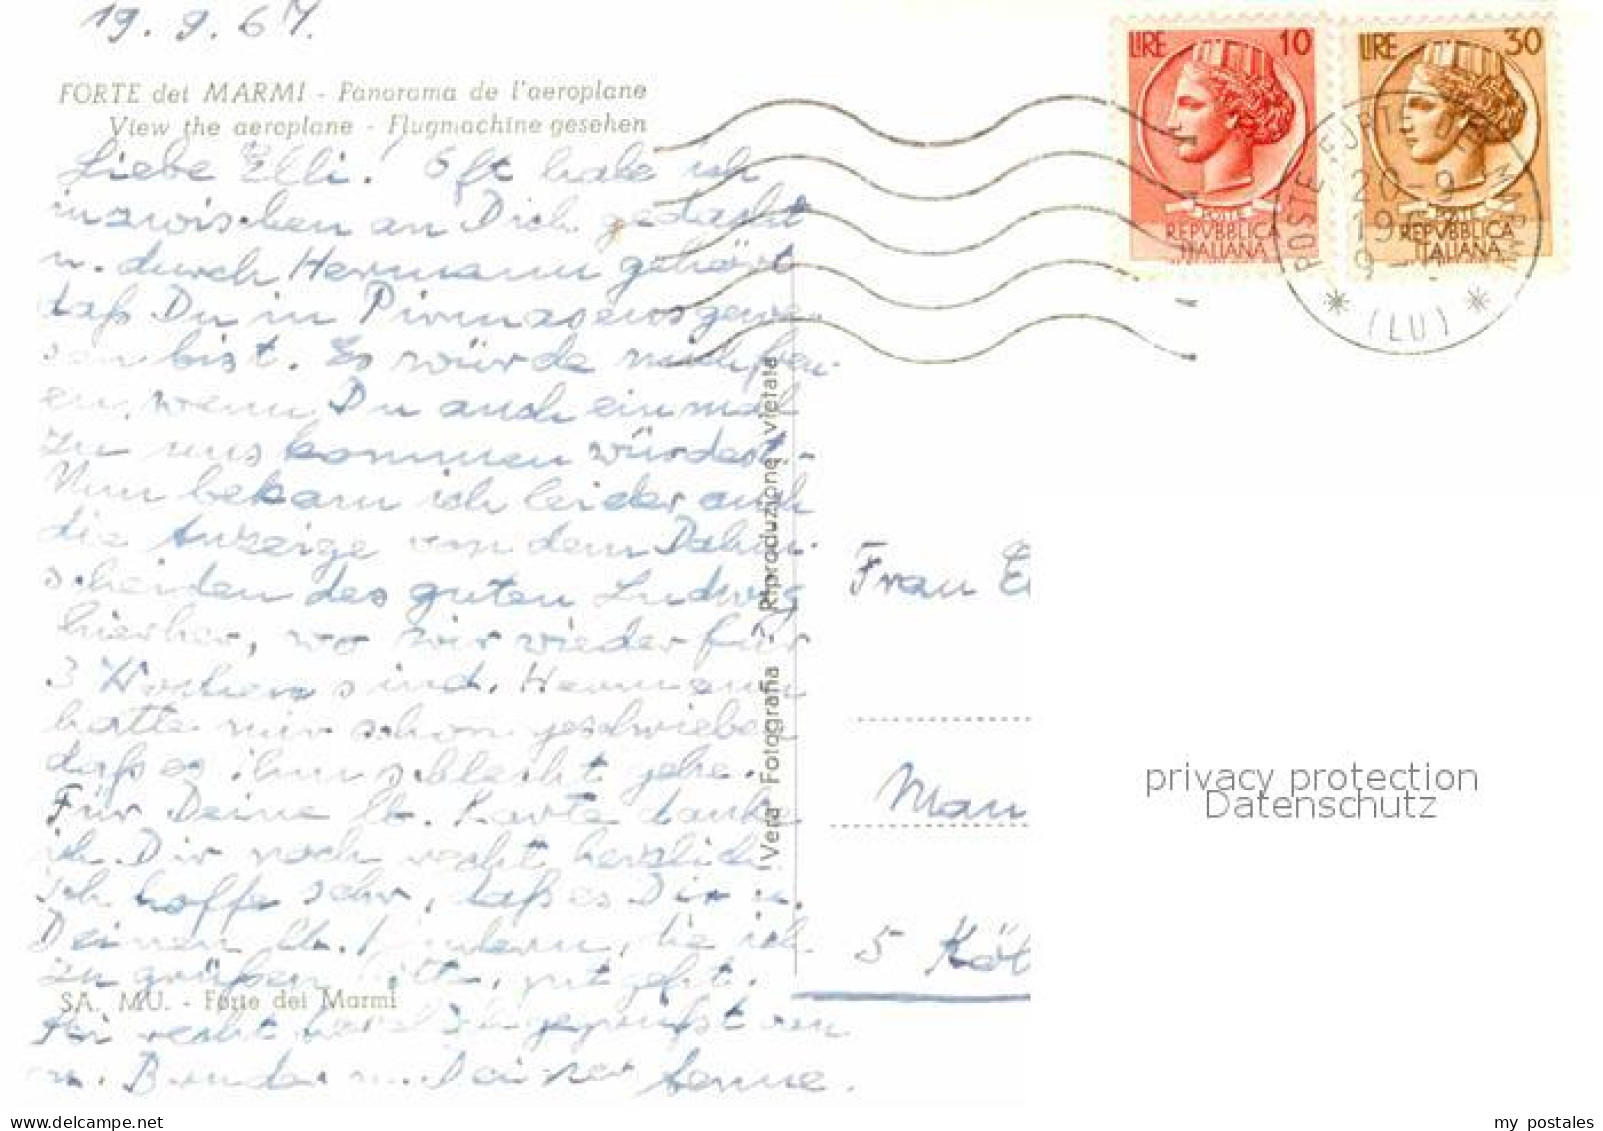 19. 9. 67.
FORTE dei MARMI - Panorama de l'aeroplane
View the aeroplane - Flugmachine gesehen
Liebe Elli! Oft habe ich
inzwischen an Dich gedacht
u. durch Hermann gehört
daß Du in Pirmasens gewe-
sen bist. Es würde mich freu-
en, wenn Du auch einmal
zu uns kommen würdest. -
Nun bekam ich leider auch
die Anzeige von dem Dahin-
scheiden des guten Ludwig
hierher, wo wir wieder für
3 Wochen sind. Hermann
hatte mir schon geschrieben
daß es ihm schlecht gehe.
Für Deine lb. Karte danke
ich Dir noch recht herzlich
Ich hoffe sehr, daß es Dir u.
Deinen lb. Kindern, die ich
zu grüßen bitte, gut geht.
SA. MU. - Forte dei Marmi
Sei recht herzlich gegrüßt von
u. Deiner Senne.
Vera Fotografia Riproduzione vietata
LIRE 10
POSTE
REPVBBLICA
ITALIANA
LIRE 30
POSTE
REPVBBLICA
ITALIANA
POSTE FORTE DEI MARMI
20-9
19
9-
(LU)
Frau
Man
5 Köl
privacy protection
Datenschutz
my postales